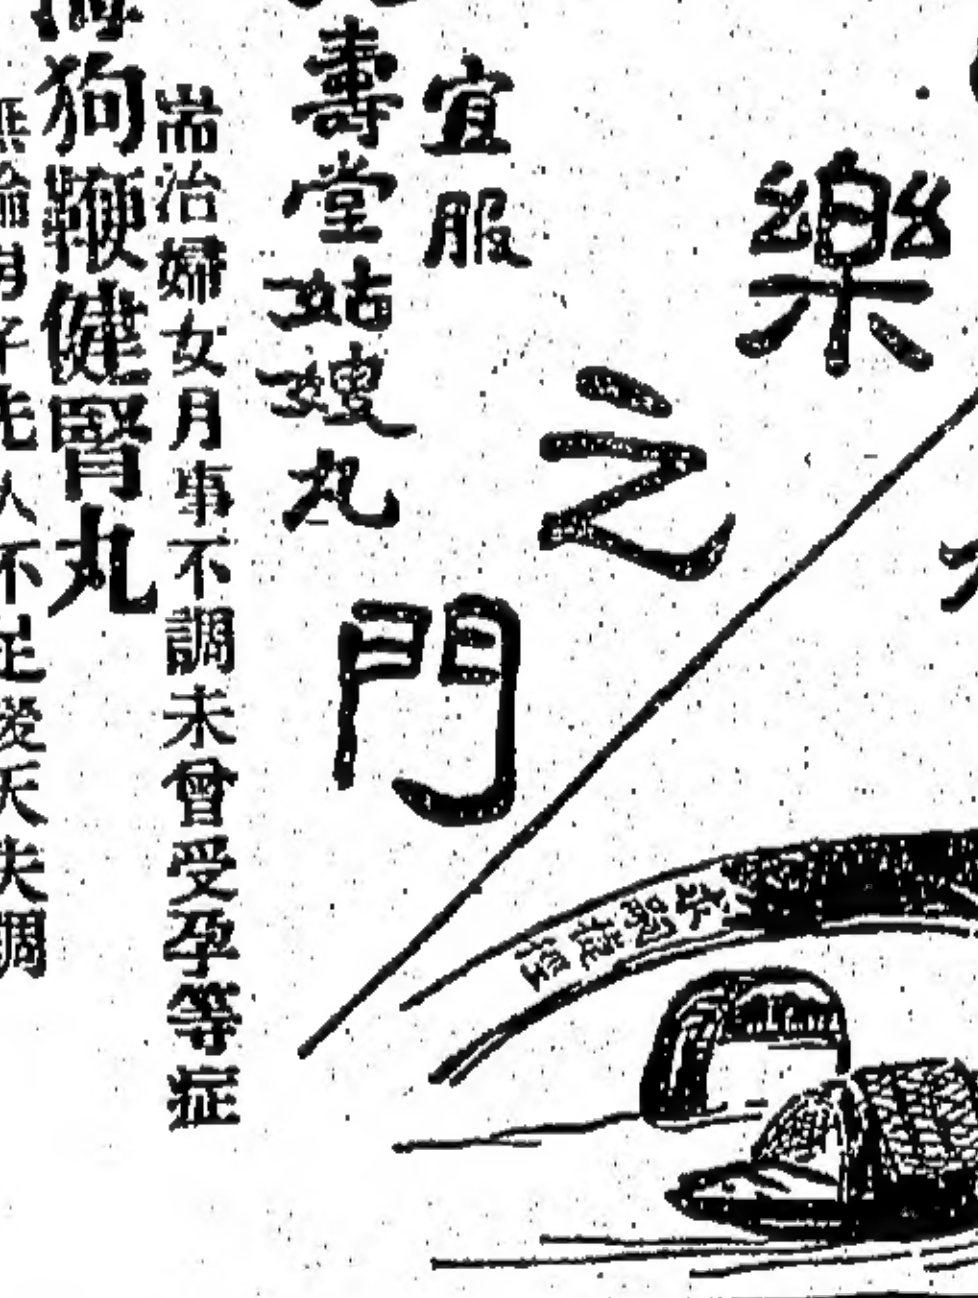 樂之門
宜服
壽堂姑嫂丸
耑治婦女月事不調未曾受孕等症
海狗鞭健腎丸
無論男子老人不足後天失調